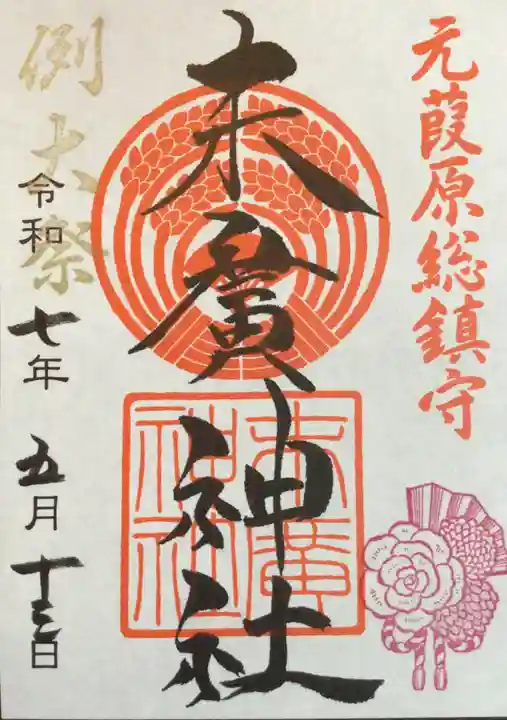 元葭原総鎮守
末廣神社
末廣
神社
例大祭
令和七年五月十三日